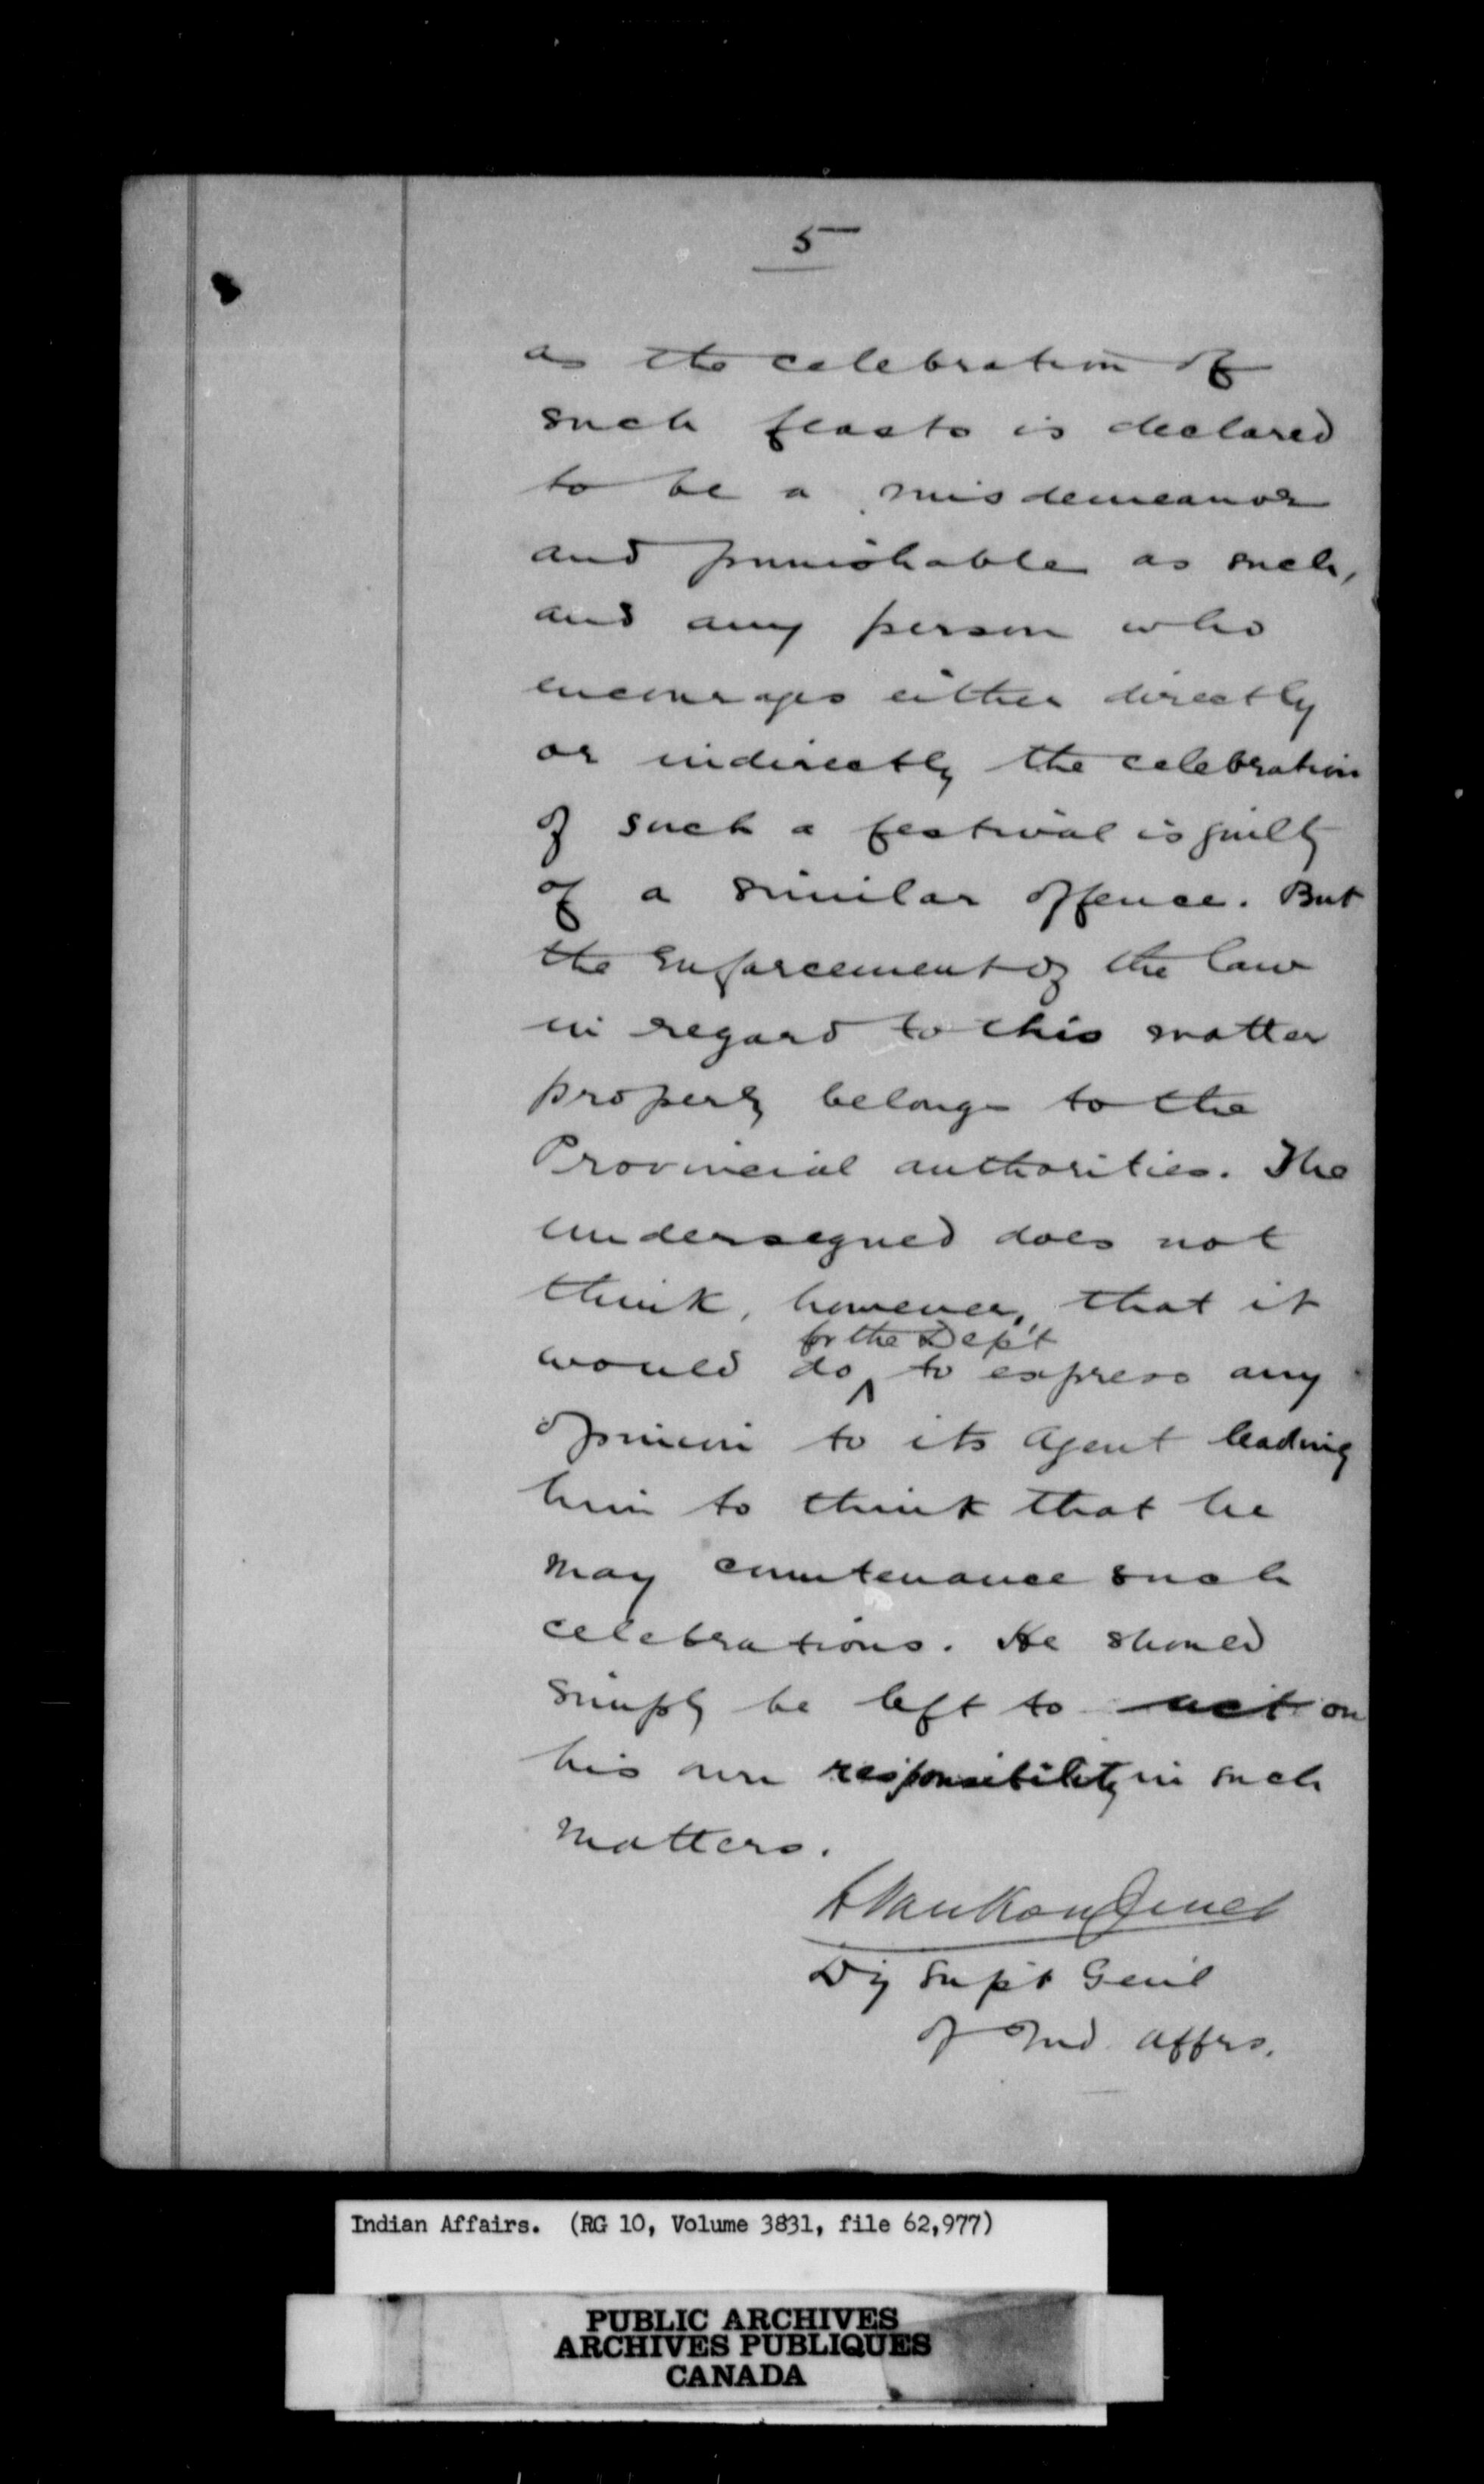 5
as the celebration of
such feasts is declared
to be a misdemeanor
and punishable as such,
and any person who
encourages either directly
or indirectly the celebration
of such a festival is guilty
of a similar offence. But
the enforcement of the law
in regard to this matter
properly belongs to the
Provincial authorities. The
undersigned does not
think, however, that it
for the Dep't
would do ^ to express any
opinion to its Agent leading
him to think that he
may countenance such
celebrations. He should
simply be left to act on
his own responsibility in such
matters.
L VanKoughnet
Dy Supt Genl
of Ind. Affrs.
Indian Affairs. (RG 10, Volume 3831, file 62,977)
PUBLIC ARCHIVES
ARCHIVES PUBLIQUES
CANADA